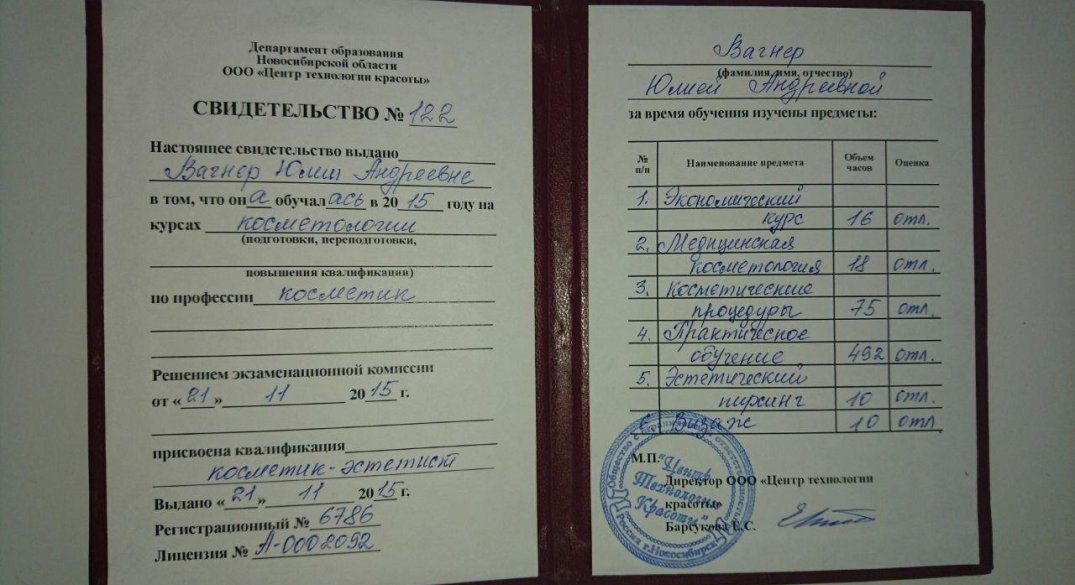 Департамент образования
Новосибирской области
ООО «Центр технологии красоты»
СВИДЕТЕЛЬСТВО № 122
Настоящее свидетельство выдано
Вагнер Юлии Андреевне
в том, что она обучалась в 2015 году на
курсах косметологии
(подготовки, переподготовки,
повышения квалификации)
по профессии косметик
Решением экзаменационной комиссии
от «21» 11 2015 г.
присвоена квалификация
косметик-эстетист
Выдано «21» 11 2015 г.
Регистрационный № 6786
Лицензия № А-0002092
Вагнер
(фамилия, имя, отчество)
Юлией Андреевной
за время обучения изучены предметы:
№ п/п Наименование предмета Объем часов Оценка
1. Экономический
курс 16 отл.
2. Медицинская
косметология 18 отл.
3. Косметические
процедуры 75 отл.
4. Практическое
обучение 492 отл.
5. Эстетический
пирсинг 10 отл.
6. Визаж 10 отл.
М.П.
Директор ООО «Центр технологии
красоты»
Барсукова Е.С.
Общество с ограниченной ответственностью
"Центр
Технологии
Красоты"
Россия г.Новосибирск